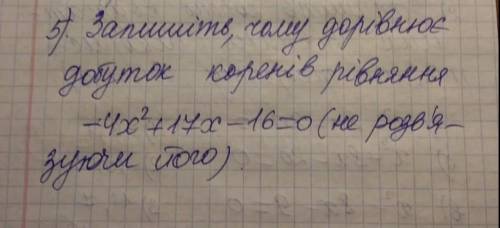 5). Запишіть, чому дорівнює
добуток коренів рівняння
-4x²+17x-16=0 (не розв'я-
зуючи його).